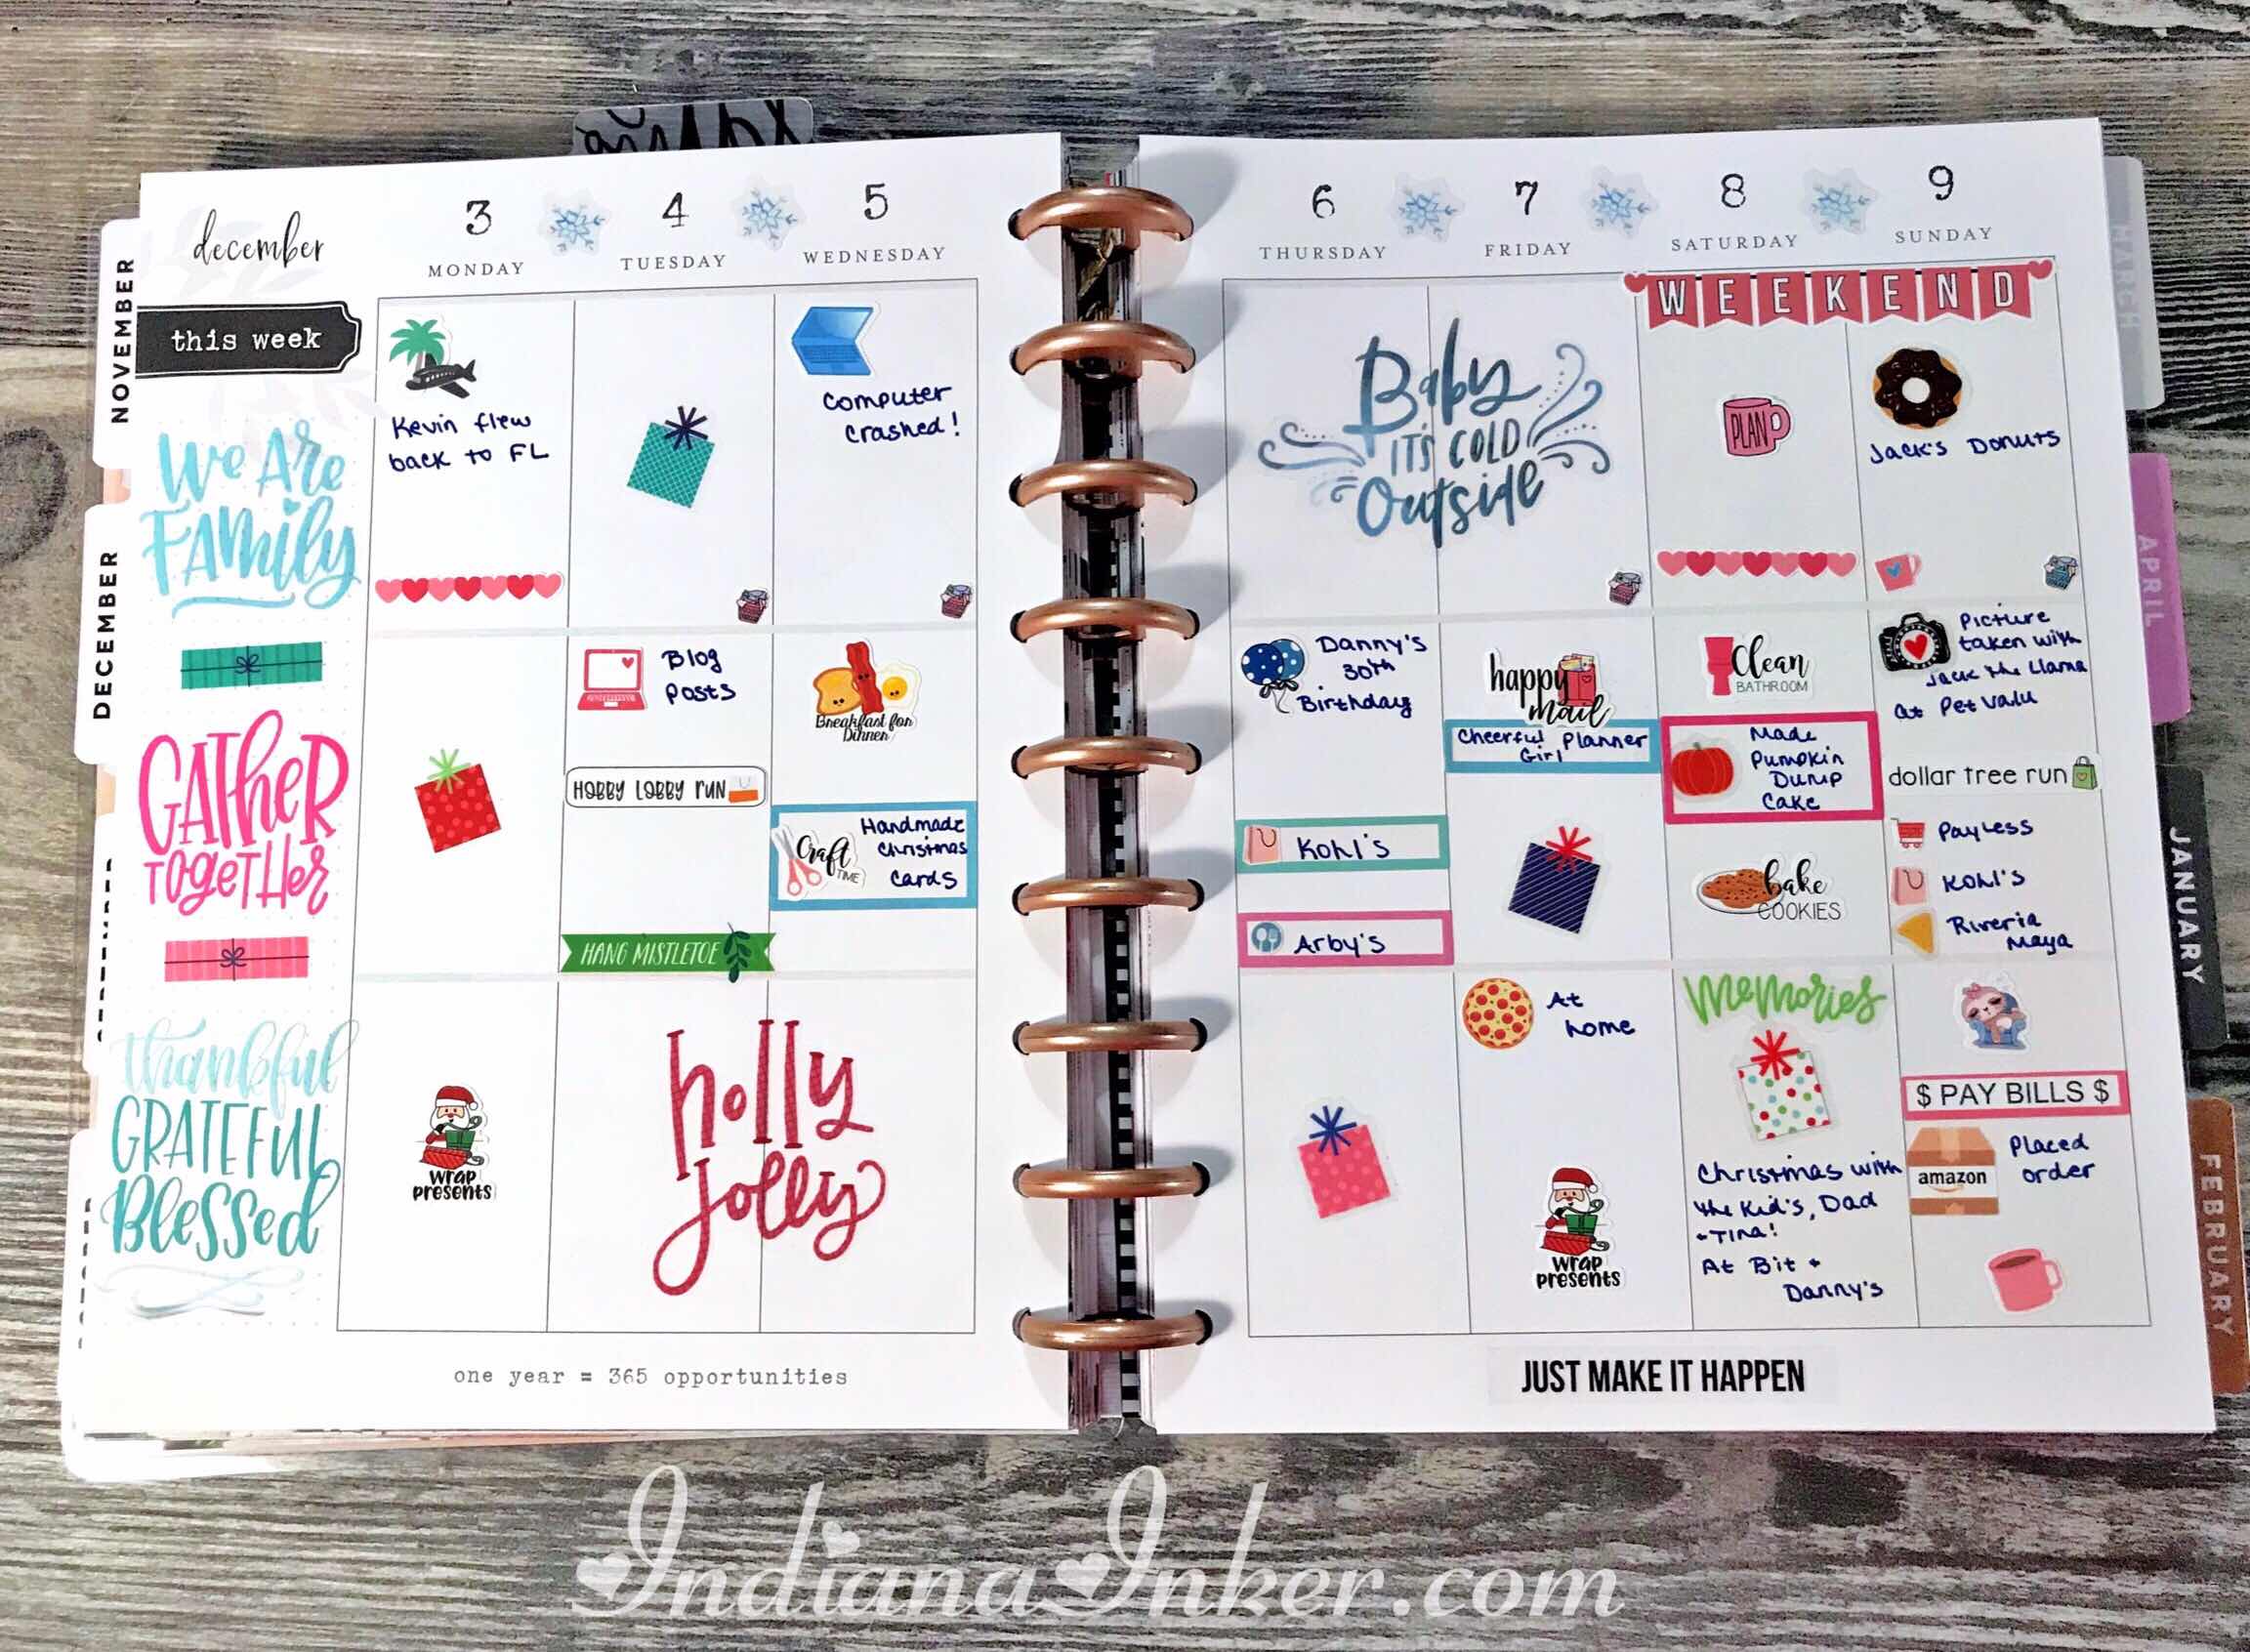 december
3
MONDAY
4
TUESDAY
5
WEDNESDAY
6
THURSDAY
7
FRIDAY
8
SATURDAY
9
SUNDAY
NOVEMBER
DECEMBER
this week
We Are
Family
Gather
Together
thankful
GRATEFUL
Blessed
Kevin flew
back to FL
wrap
presents
Blog
Posts
HOBBY LOBBY RUN
HANG MISTLETOE
holly
jolly
Computer
Crashed!
Breakfast for
Dinner
Craft
TIME
Handmade
Christmas
Cards
one year = 365 opportunities
Baby
IT'S COLD
Outside
Danny's
30th
Birthday
Kohl's
Arby's
happy
mail
Cheerful Planner
Girl
At
home
wrap
presents
WEEKEND
PLAN
Clean
BATHROOM
Made
Pumpkin
Dump
Cake
bake
COOKIES
Memories
Christmas with
the Kid's, Dad
+ Tina!
At Bit +
Danny's
Jack's Donuts
Picture
taken with
Jack the Llama
at Pet Valu
dollar tree run
Payless
Kohl's
Riveria
Maya
$ PAY BILLS $
amazon
Placed
order
JUST MAKE IT HAPPEN
MARCH
APRIL
JANUARY
FEBRUARY
IndianaInker.com